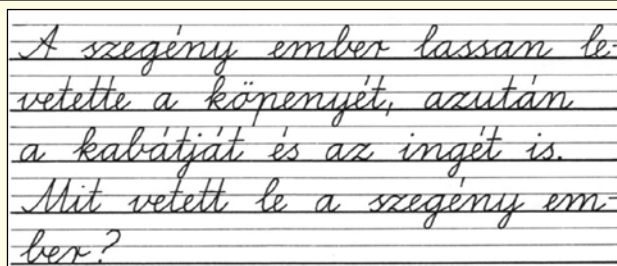 A szegény ember lassan le-
vetette a köpenyét, azután
a kabátját és az ingét is.
Mit vetett le a szegény em-
ber?